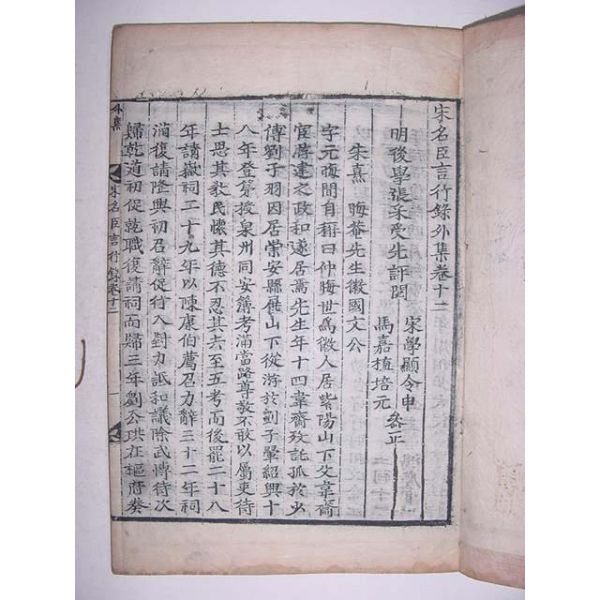 宋名臣言行錄外集卷十二
明後學張采受先評閱
宋學顯令申
馬嘉植培元
叅正
朱熹 晦菴先生徽國文公
字元晦間自稱曰仲晦世爲徽人居紫陽山下父韋齋
宦游建之政和遂居焉先生年十四韋齋歿託孤於少
傅劉子羽因居崇安縣屏山下從游於劉子翬紹興十
八年登第授泉州同安簿考滿當路尊敬不敢以屬吏待
士思其敎民懷其德不忍其去至五考而後罷二十八
年請嶽祠二十九年以陳康伯薦召力辭三十二年祠
滿復請隆興初召辭促行入對力詆和議除武博待次
歸乾道初促就職復請祠而歸三年劉公珙在樞府奏
外集
宋名臣言行錄卷十二
一